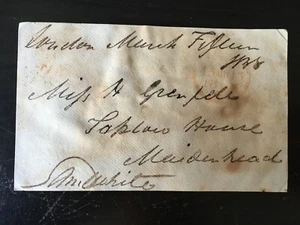 London March Fifteen
1838
Miss H Grenfell
Taplow House
Maidenhead
Saml White